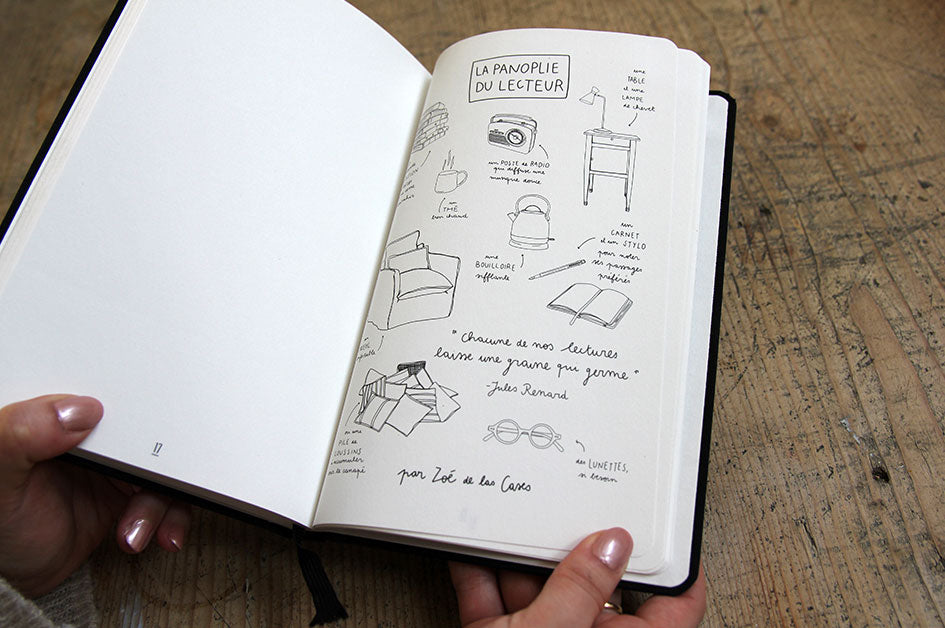 LA PANOPLIE
DU LECTEUR
une
TABLE
et une
LAMPE
de chevet
un POSTE de RADIO
qui diffuse une
musique douce
un
THÉ
bien chaud
un
CARNET
et un STYLO
pour noter
ses passages
préférés
une
BOUILLOIRE
sifflante
"Chacune de nos lectures
laisse une graine qui germe"
-Jules Renard
ou une
PILE de
COUSSINS
à accumuler
sur le canapé
des LUNETTES,
si besoin
par Zoé de las Cases
17